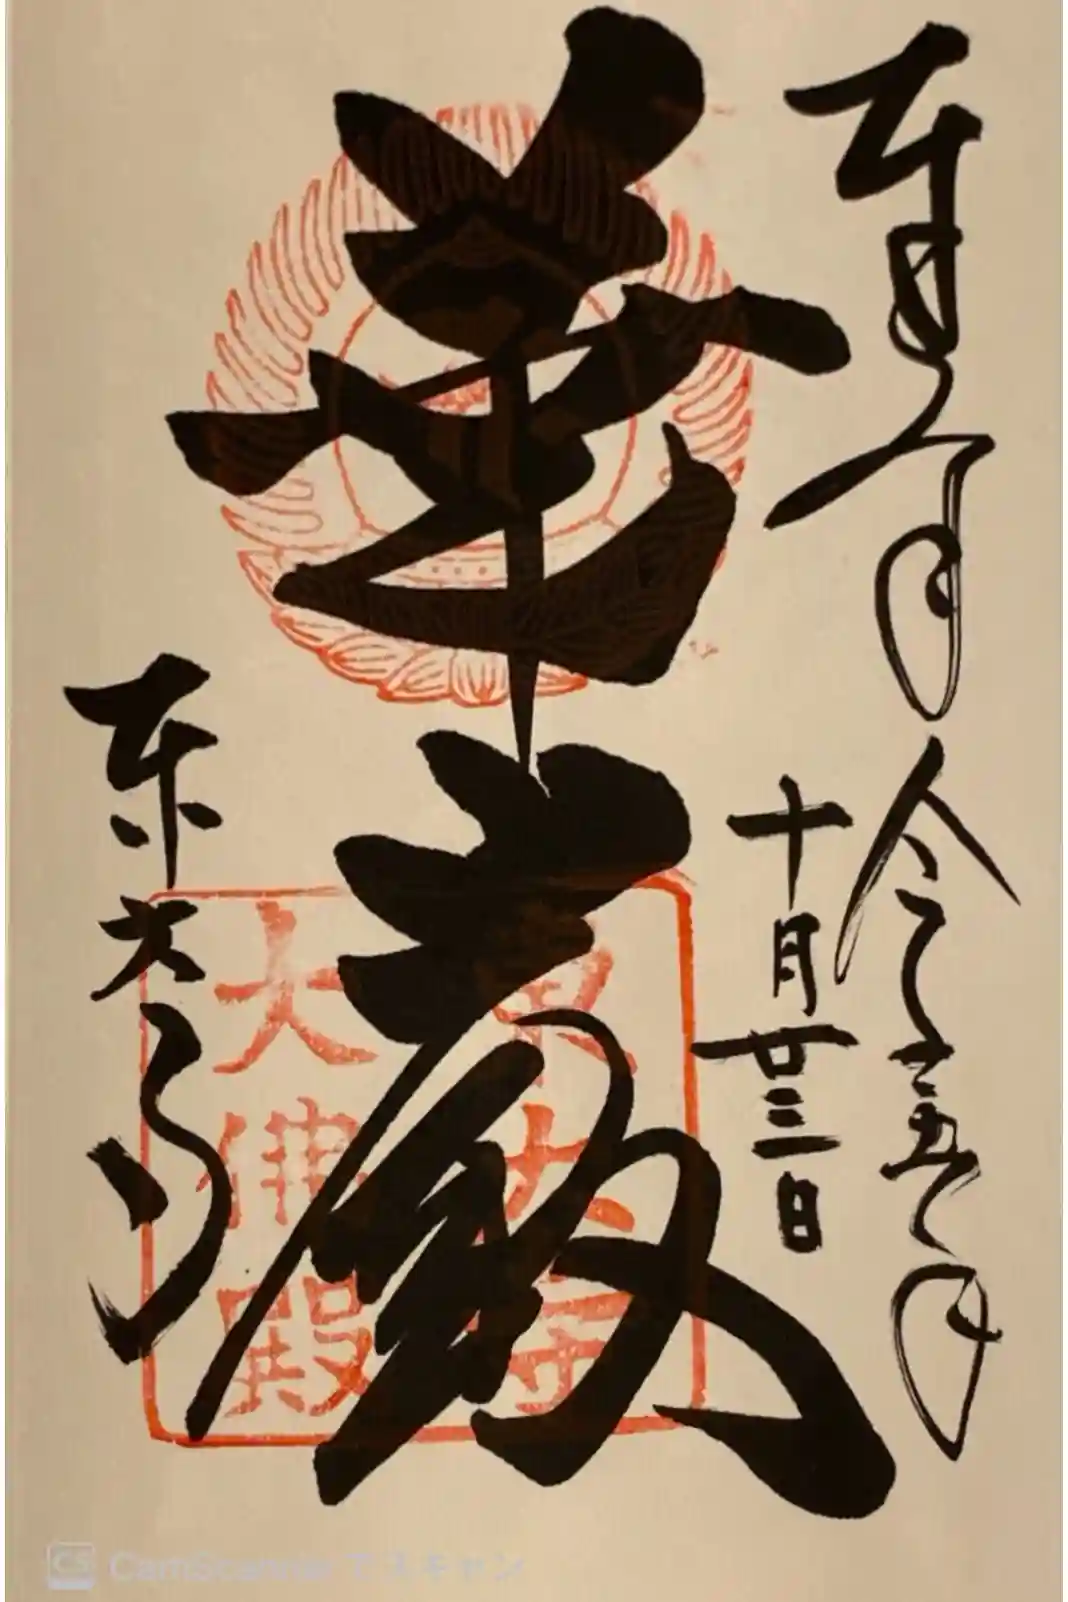 奉拝
令和五年
十月廿三日
華厳
東大寺
東大寺
大佛殿
CS CamScanner でスキャン